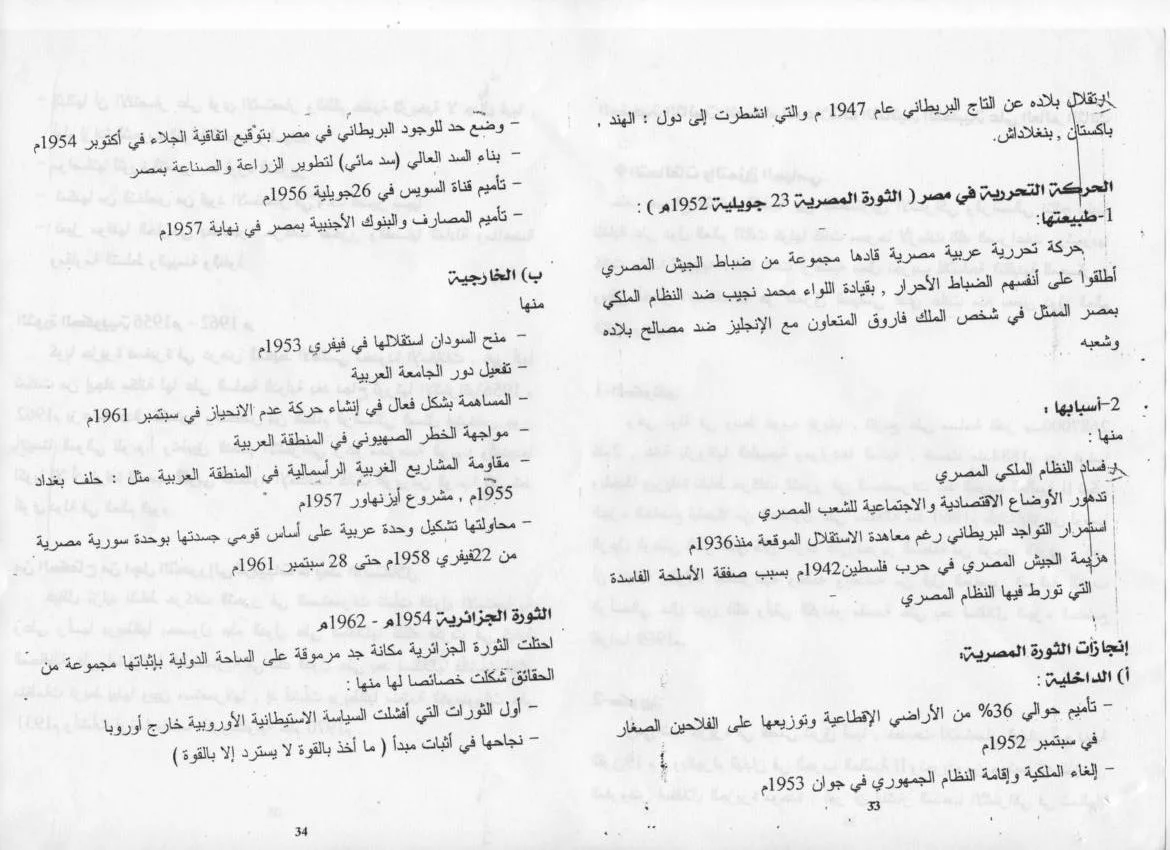 إستقلال بلاده عن التاج البريطاني عام 1947 م والتي انشطرت إلى دول : الهند ,
باكستان , بنغلاداش.
الحركة التحررية في مصر ( الثورة المصرية 23 جويلية 1952م ) :
1-طبيعتها:
حركة تحررية عربية مصرية قادها مجموعة من ضباط الجيش المصري
أطلقوا على أنفسهم الضباط الأحرار , بقيادة اللواء محمد نجيب ضد النظام الملكي
بمصر الممثل في شخص الملك فاروق المتعاون مع الإنجليز ضد مصالح بلاده
وشعبه
2-أسبابها :
منها:
فساد النظام الملكي المصري
تدهور الأوضاع الاقتصادية والاجتماعية للشعب المصري
استمرار التواجد البريطاني رغم معاهدة الاستقلال الموقعة منذ1936م
هزيمة الجيش المصري في حرب فلسطين1942م بسبب صفقة الأسلحة الفاسدة
التي تورط فيها النظام المصري
إنجازات الثورة المصرية:
أ) الداخلية :
– تأميم حوالي 36% من الأراضي الإقطاعية وتوزيعها على الفلاحين الصغار
في سبتمبر 1952م
– إلغاء الملكية وإقامة النظام الجمهوري في جوان 1953م
33
– وضع حد للوجود البريطاني في مصر بتوقيع اتفاقية الجلاء في أكتوبر 1954م
– بناء السد العالي (سد مائي) لتطوير الزراعة والصناعة بمصر
– تأميم قناة السويس في 26جويلية 1956م
– تأميم المصارف والبنوك الأجنبية بمصر في نهاية 1957م
ب) الخارجية
منها
– منح السودان استقلالها في فيفري 1953م
– تفعيل دور الجامعة العربية
– المساهمة بشكل فعال في إنشاء حركة عدم الانحياز في سبتمبر 1961م
– مواجهة الخطر الصهيوني في المنطقة العربية
– مقاومة المشاريع الغربية الرأسمالية في المنطقة العربية مثل : حلف بغداد
1955م , مشروع أيزنهاور 1957م
– محاولتها تشكيل وحدة عربية على أساس قومي جسدتها بوحدة سورية مصرية
من 22فيفري 1958م حتى 28 سبتمبر 1961م
الثورة الجزائرية 1954م - 1962م
احتلت الثورة الجزائرية مكانة جد مرموقة على الساحة الدولية بإثباتها مجموعة من
الحقائق شكلت خصائصا لها منها:
– أول الثورات التي أفشلت السياسة الاستيطانية الأوروبية خارج أوروبا
– نجاحها في أثبات مبدأ ( ما أخذ بالقوة لا يسترد إلا بالقوة )
34